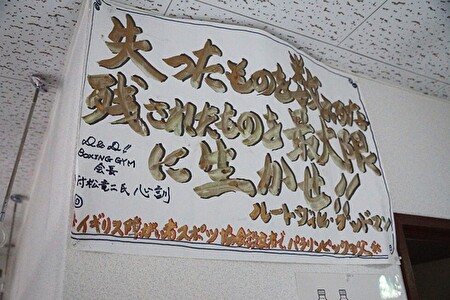 失ったものを数えるな
残されたものを最大限
に生かせ!!
ルートウィヒ・グッドマン
D&D!!
BOXING GYM
会長
村松竜二氏 心訓
イギリス障がい者スポーツ
パラリンピックの父